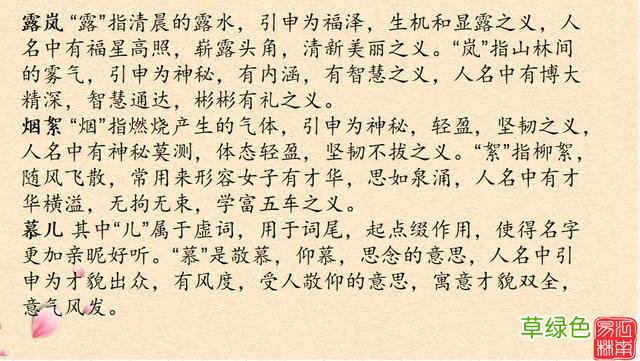 露岚 “露”指清晨的露水，引申为福泽，生机和显露之义，人
名中有福星高照，崭露头角，清新美丽之义。“岚”指山林间
的雾气，引申为神秘，有内涵，有智慧之义，人名中有博大
精深，智慧通达，彬彬有礼之义。
烟絮 “烟”指燃烧产生的气体，引申为神秘，轻盈，坚韧之义，
人名中有神秘莫测，体态轻盈，坚韧不拔之义。“絮”指柳絮，
随风飞散，常用来形容女子有才华，思如泉涌，人名中有才
华横溢，无拘无束，学富五车之义。
慕儿 其中“儿”属于虚词，用于词尾，起点缀作用，使得名字
更加亲昵好听。“慕”是敬慕，仰慕，思念的意思，人名中引
申为才貌出众，有风度，受人敬仰的意思，寓意才貌双全，
意气风发。
草绿色